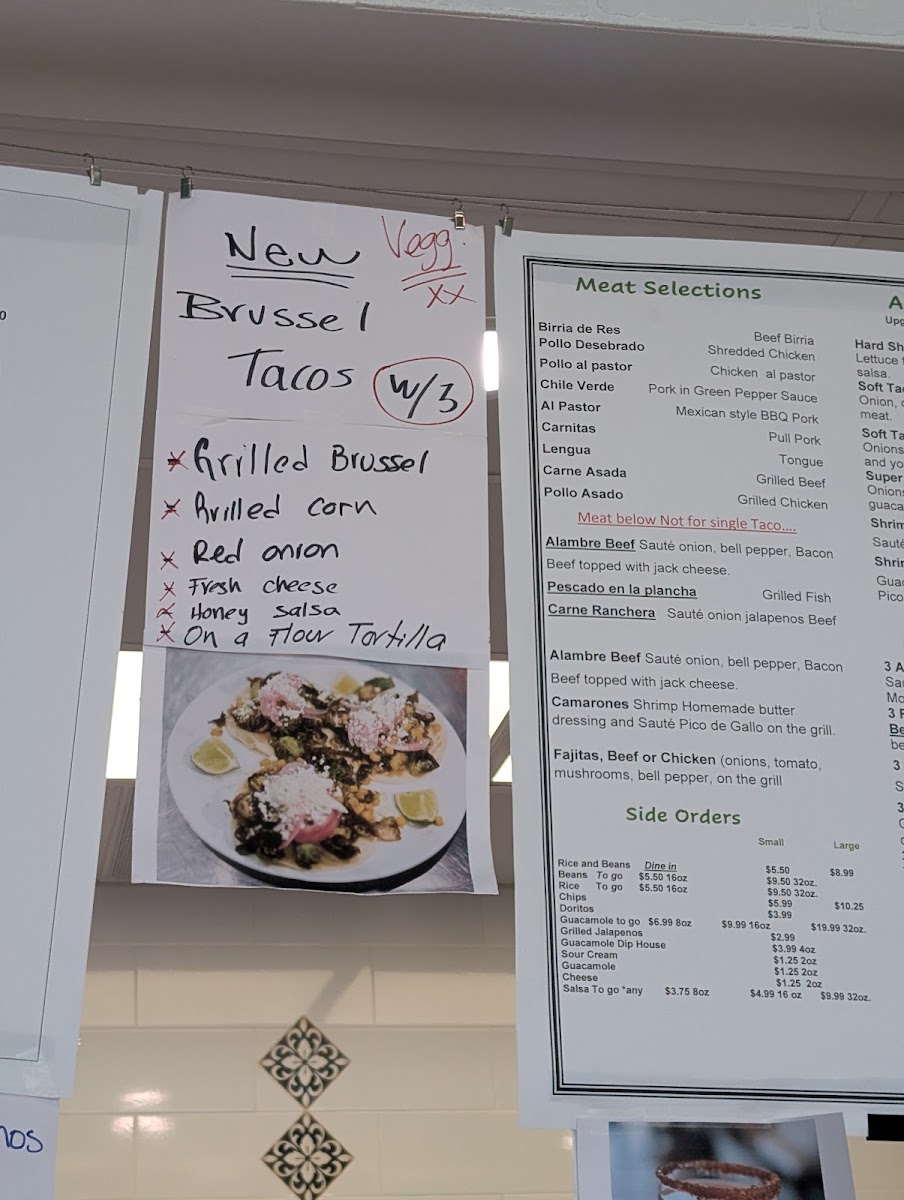 0
New
Vegg.
xx
Brussel
Tacos
w/3
x Grilled Brussel
x Grilled corn
x Red onion
x Fresh cheese
x Honey salsa
x On a Flour Tortilla
Meat Selections
Birria de Res Beef Birria
Pollo Desebrado Shredded Chicken
Pollo al pastor Chicken al pastor
Chile Verde Pork in Green Pepper Sauce
Al Pastor Mexican style BBQ Pork
Carnitas Pull Pork
Lengua Tongue
Carne Asada Grilled Beef
Pollo Asado Grilled Chicken
Meat below Not for single Taco....
Alambre Beef Sauté onion, bell pepper, Bacon
Beef topped with jack cheese.
Pescado en la plancha Grilled Fish
Carne Ranchera Sauté onion jalapenos Beef
Alambre Beef Sauté onion, bell pepper, Bacon
Beef topped with jack cheese.
Camarones Shrimp Homemade butter
dressing and Sauté Pico de Gallo on the grill.
Fajitas, Beef or Chicken (onions, tomato,
mushrooms, bell pepper, on the grill
Side Orders
Small Large
Rice and Beans Dine in $5.50 $8.99
Beans To go $5.50 16oz $9.50 32oz.
Rice To go $5.50 16oz $9.50 32oz.
Chips $5.99 $10.25
Doritos $3.99
Guacamole to go $6.99 8oz $9.99 16oz $19.99 32oz.
Grilled Jalapenos $2.99
Guacamole Dip House $3.99 4oz
Sour Cream $1.25 2oz
Guacamole $1.25 2oz
Cheese $1.25 2oz
Salsa To go *any $3.75 8oz $4.99 16 oz $9.99 32oz.
A
Upg
Hard Sh
Lettuce
salsa.
Soft Ta
Onion,
meat.
Soft Ta
Onions
and yo
Super
Onion
guaca
Shrim
Sauté
Shri
Gua
Pico
3 A
Sa
Mo
3
Be
be
3
S
3
nos